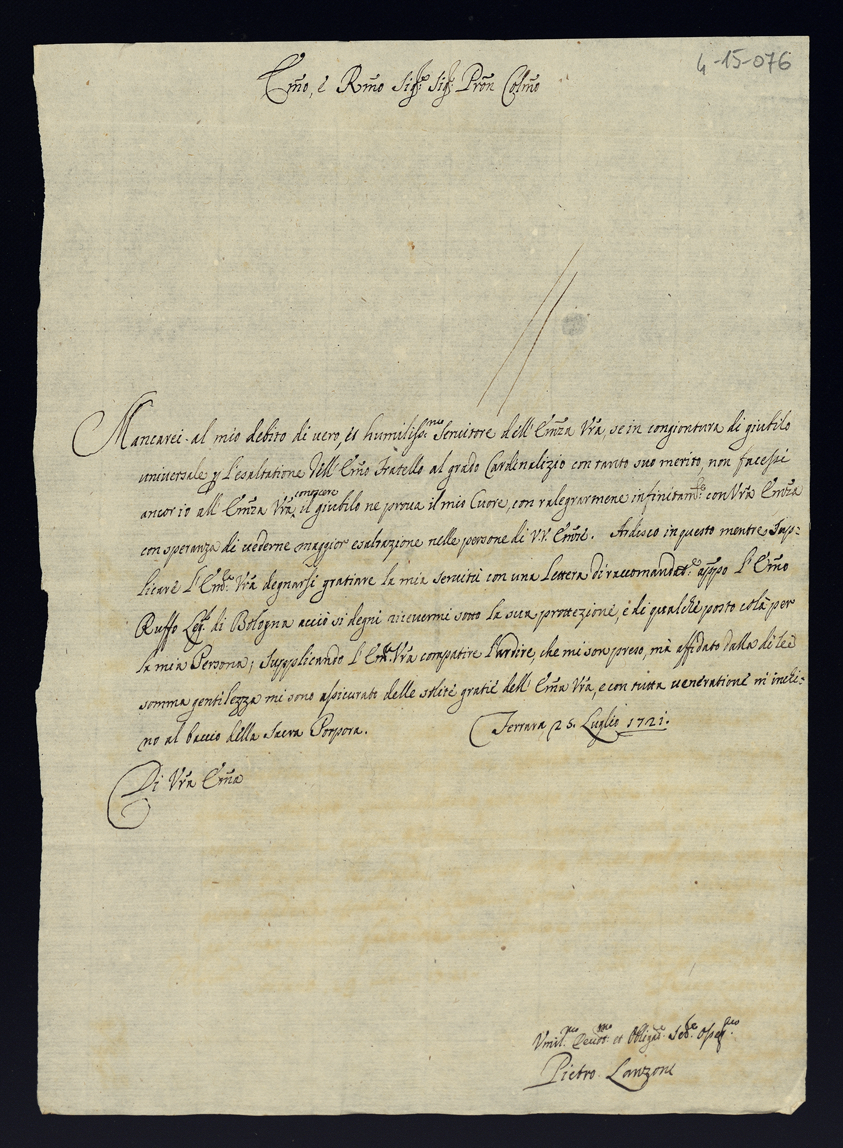 4-15-076
Em̃o, è Rm̃o Sig.re Sig.r Prõn Colm̃o
Mancarei al mio debito di vero, et humiliss.mo Servitore dell'Em̃za Vrã, se in congiontura di giubilo
universale p l'esaltatione dell'Em̃o Fratello al grado Cardinalizio con tanto suo merito, non facessi
ancor io all'Em̃za Vrã conoscere il giubilo ne prova il mio Cuore, con ralegrarmene infinitam.te con Vrã Em̃za
con speranza di vederne maggior esaltazione nelle persone di V.V. Em̃ze. Ardisco in questo mentre sup=
licare l'Em̃za Vrã degnarsi gratiare la mia servitù con una Lettera di raccomandat.e appo l'Em̃o
Ruffo Leg.o di Bologna acciò si degni ricevermi sotto la sua prottezione, e di qualche posto colà per
la mia Persona; supplicando l'Em̃za Vrã compatire l'ardire, che mi son preso, mà affidato dalla di lei
somma gentilezza mi sono assicurato delle solite gratie dell'Em̃za Vrã, e con tutta veneratione m'inchi=
no al baccio della Sacra Porpora.
Ferrara 25. Luglio 1721.
Di Vrã Em̃za
Umil.mo Devot.mo et Obligat.mo Se.re Osseq.mo
Pietro Lanzoni